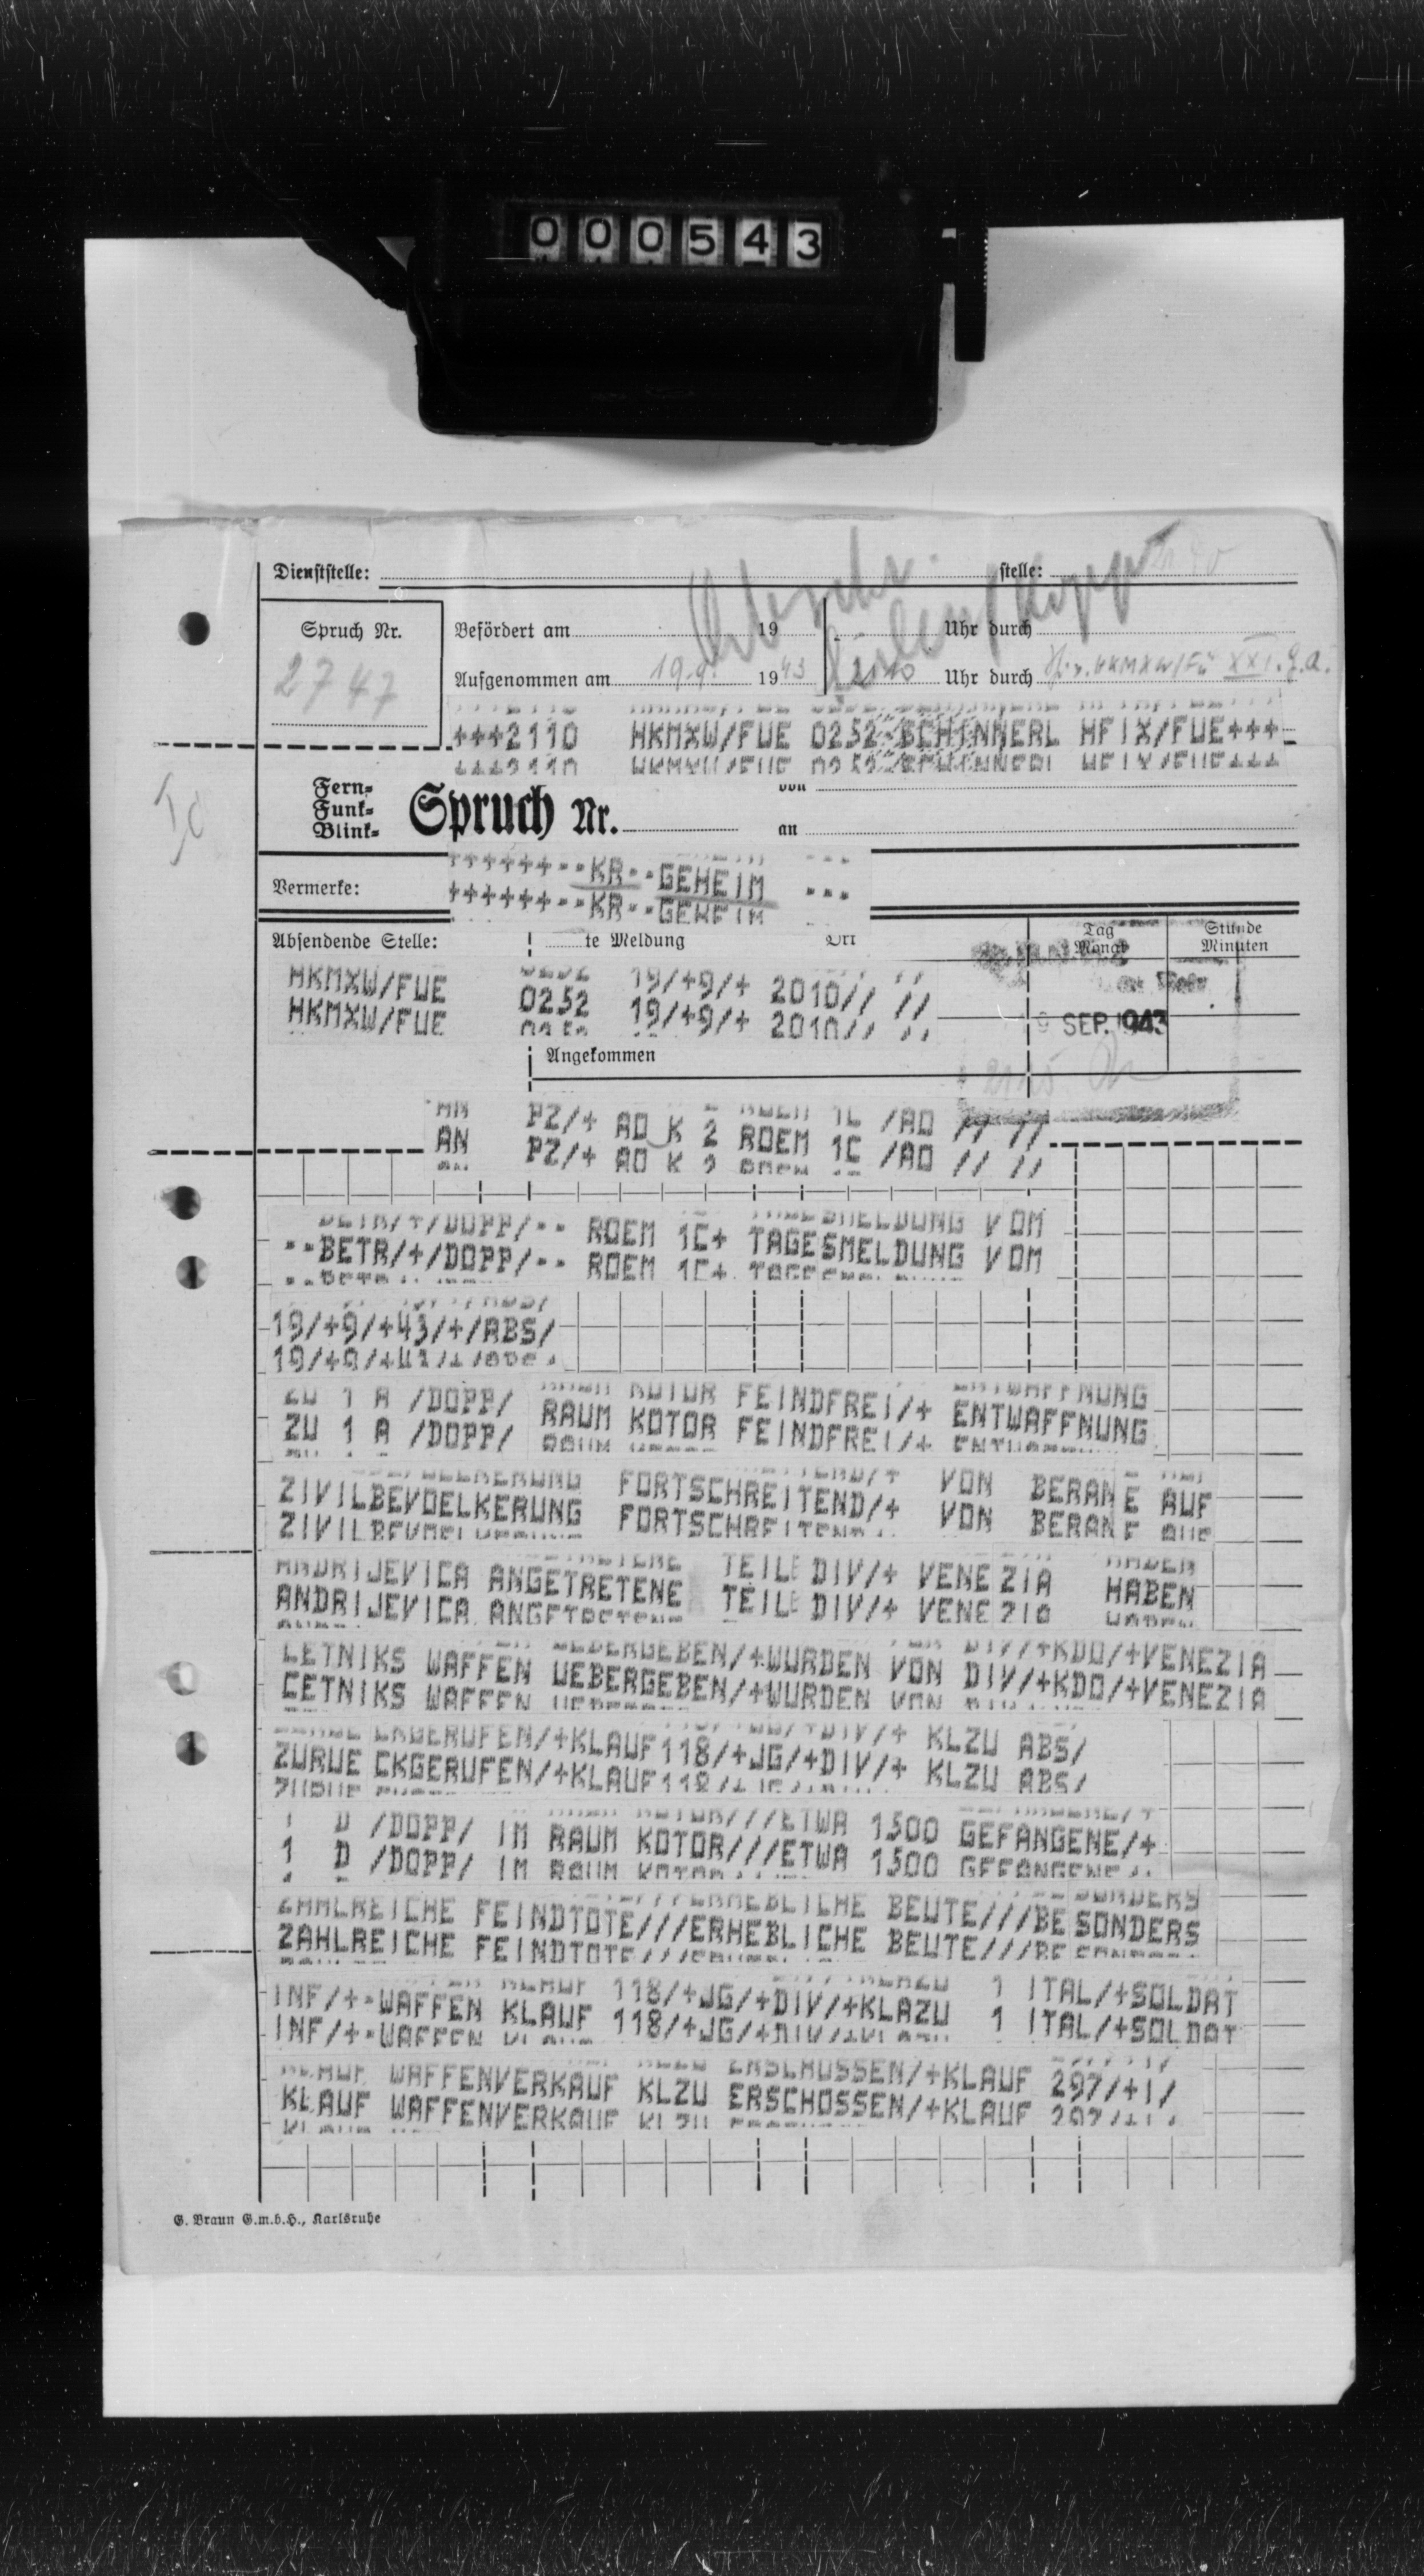 000543
Dienststelle: stelle:
Spruch Nr.
2747
Befördert am 19 Uhr durch
Aufgenommen am 19.9. 1943 2110 Uhr durch HKMXW/Fü XXI. G.A.
+++2110 HKMXW/FUE 0252 SCHINNERL HFIX/FUE+++
Ic
Fern-
Funk-
Blink-
Spruch Nr. von
an
Vermerke: ++++++--KR--GEHEIM ---
Absendende Stelle: te Meldung Ort Tag Monat Stunde Minuten
HKMXW/FUE 0252 19/+9/+ 2010// //
SEP. 1943
Angekommen
AN PZ/+ AO K 2 ROEM 1C /AO // //
--BETR/+/DOPP/-- ROEM 1C+ TAGESMELDUNG VOM
19/+9/+43/+/ABS/
ZU 1 A /DOPP/ RAUM KOTOR FEINDFREI/+ ENTWAFFNUNG
ZIVILBEVOELKERUNG FORTSCHREITEND/+ VON BERANE AUF
ANDRIJEVICA ANGETRETENE TEILE DIV/+ VENEZIA HABEN
CETNIKS WAFFEN UEBERGEBEN/+WURDEN VON DIV/+KDO/+VENEZIA
ZURUECKGERUFEN/+KLAUF118/+JG/+DIV/+ KLZU ABS/
1 D /DOPP/ IM RAUM KOTOR///ETWA 1500 GEFANGENE/+
ZAHLREICHE FEINDTOTE///ERHEBLICHE BEUTE///BESONDERS
INF/+-WAFFEN KLAUF 118/+JG/+DIV/+KLAZU 1 ITAL/+SOLDAT
KLAUF WAFFENVERKAUF KLZU ERSCHOSSEN/+KLAUF 297/+I/
G. Braun G.m.b.H., Karlsruhe